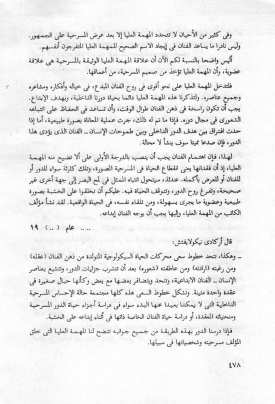 وفى كثير من الأحيان لا تتحدد المهمة العليا إلا بعد عرض المسرحية على الجمهور.
وليس نادرا ما يساعد الفنان فى إيجاد الاسم الصحيح للمهمة العليا المتفرجون أنفسهم.
أليس واضحا بالنسبة لكم الآن أن علاقة المهمة العليا الوثيقة بالمسرحية هى علاقة
عضوية، وأن المهمة العليا تؤخذ من صميم المسرحية، من أعماقها.
فلتدخل المهمة العليا على نحو أقوى فى روح الفنان المبدع، فى خياله وأفكاره ومشاعره
وجميع عناصره. ولتذكرنا هذه المهمة العليا دائما بحياة دورنا الداخلية، وبهدف الإبداع.
يجب أن تكون راسخة فى ذهن الفنان طوال الوقت، وأن تساعد فى الحفاظ على انتباهه
الشعورى فى مجال دوره. فإذا ما تم له ذلك، جرت عملية المعاناة بصورة طبيعية، أما إذا
حدث افتراق بين هدف الدور الداخلى وبين طموحات الإنسان ـ الفنان الذى يؤدى هذا
الدور، فإن صدعا مميتا سوف ينشأ لا محالة.
لهذا، فإن اهتمام الفنان يجب أن ينصب بالدرجة الأولى على ألا تضيع منه المهمة
العليا، إذ أن فقدانها يعنى انقطاع الحياة فى المسرحية المصورة، وتلك كارثة سواء للدور أو
للفنان أو للعرض بأكمله. عندئذ، سيتحول انتباه الممثل فى لمح البصر إلى جهة أخرى غير
صحيحة، وتفرغ روح الدور، وتتوقف الحياة فيه. عليكم أن تخلقوا على الخشبة بصورة
طبيعية وعضوية ما يجرى بسهولة، ومن تلقاء نفسه، فى الحياة الواقعية. لقد نشأ مؤلف
الكاتب من المهمة العليا، وإليها يجب أن يوجه الفنان إبداعه.
... عام (..) ١٩
قال أركادى نيكولايفتش:
ـ وهكذا، تتحد خطوط سعى محركات الحياة السيكولوجية المتولدة من ذهن الفنان (عقله)
ومن رغبته (إرادته) ومن عاطفته (شعوره) بعد أن تتشرب جزئيات الدور، وتتشبع بعناصر
الإنسان ـ الفنان الإبداعية، وتتحد ويتضافر بعضها مع بعض وكأنها حبال صغيرة فى
عقدة واحدة متينة. وتشكل خطوط السعى هذه كلها مجتمعة حالة الإحساس المسرحية
الداخلية التى لا يمكننا بعيدا عنها البدء سواء فى دراسة أجزاء حياة الدور المسرحية
ومنحنياته المعقدة، أو دراسة حياة الفنان الخاصة ذاتها فى أثناء إبداعه على الخشبة.
فإذا درسنا الدور بهذه الطريقة من جميع جوانبه تتضح لنا المهمة العليا التى خلق
المؤلف مسرحيته وشخصياتها فى سبيلها.
٤٧٨